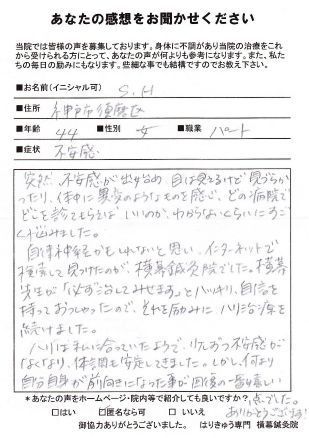 あなたの感想をお聞かせください
当院では皆様の声を募集しております。身体に不調があり当院の治療をこれ
から受けられる方にとって、あなたの声が何よりも参考になります。また、私た
ちの毎日の励みにもなります。些細な事でも結構ですのでお教え下さい。
■お名前(イニシャル可) S.H
■住所 神戸市須磨区
■年齢 44 ■性別 女 ■職業 パート
■症状 不安感
突然、不安感が出始め、目は見えるけど見づらか
ったり、体中に異変のようなものを感じ、どの病院で
どこを診てもらえばいいのか、わからないくらいにすご
く悩みました。
自律神経かもしれないと思い、インターネットで
検索して見つけたのが、横幕鍼灸院でした。横幕
先生が「必ず治してみせます」とハッキリ、自信を
持っておっしゃったので、それを励みにハリ治療を
続けました。
ハリは私に合っていたようで、不安感が
なくなり、体調も安定してきました。しかし、何より
自分自身が前向きになった事が回復の一番嬉しい
点でした。
ありがとうございます!
*あなたの声をホームページ・院内等で紹介しても良いですか?
□はい □匿名なら可 □いいえ
御協力ありがとうございました。 はりきゅう専門 横幕鍼灸院